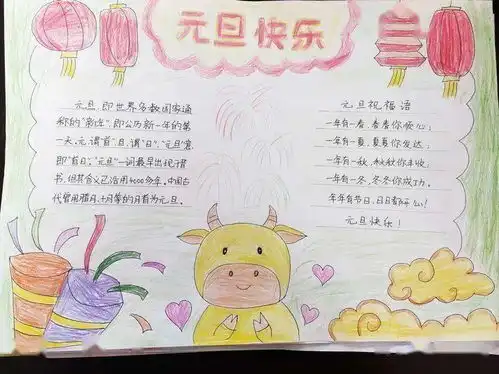 元旦快乐
元旦,即世界多数国家通
称的"新年",即公历新一年的第
一天。元,谓"首",旦,谓"日","元旦"意
即"首日"。"元旦"一词最早出现《晋
书》,但其含义已沿用4000多年。中国古
代曾用腊月、十月等的月首为元旦。
元旦祝福语
一年有一春,春春你顺心;
一年有一夏,夏夏你发达;
一年有一秋,秋秋你丰收,
一年有一冬,冬冬你成功。
年年有节日,日日都开心!
元旦快乐!